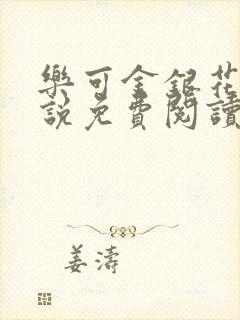 樂可金銀花
說免費閱讀
姜濤